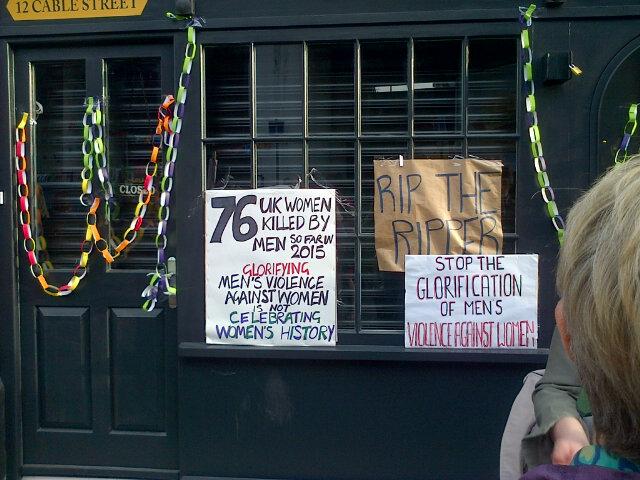 12 CABLE STREET
CLOS
76 UK WOMEN
KILLED BY
MEN SO FAR IN
2015
GLORIFYING
MEN'S VIOLENCE
AGAINST WOMEN
IS NOT
CELEBRATING
WOMEN'S HISTORY
RIP THE
RIPPER
STOP THE
GLORIFICATION
OF MEN'S
VIOLENCE AGAINST WOMEN